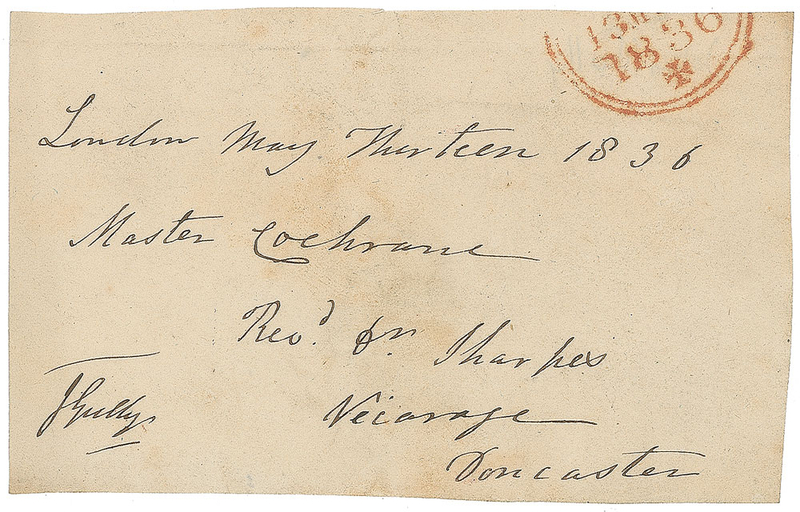 13 M
1836
London May Thirteen 1836
Master Cochrane
Revd. Dr. Sharpes
JGully Veiarage
Doncaster